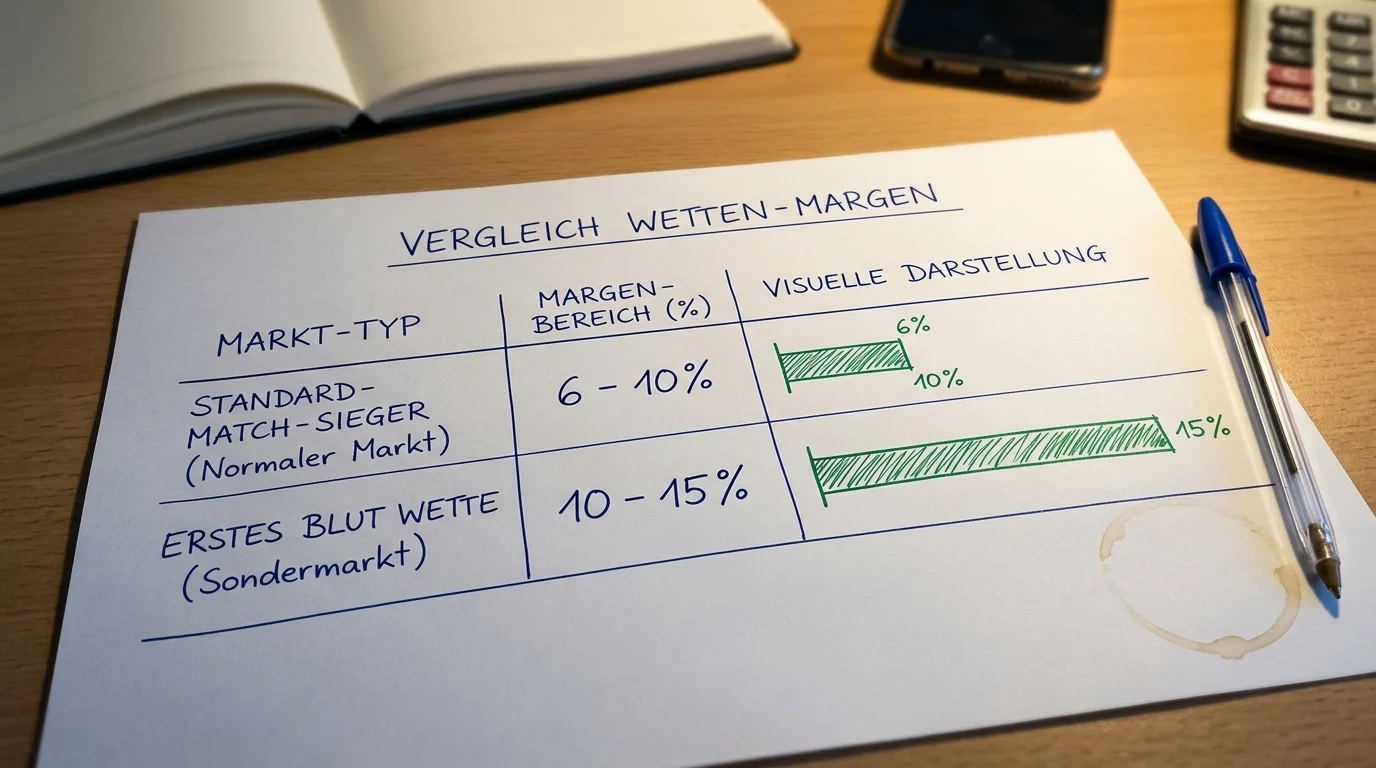 VERGLEICH WETTEN-MARGEN
MARKT-TYP
MARGEN-
BEREICH (%)
VISUELLE DARSTELLUNG
STANDARD-
MATCH-SIEGER
(Normaler Markt)
6 - 10%
6%
10%
ERSTES BLUT WETTE
(Sondermarkt)
10 - 15%
15%